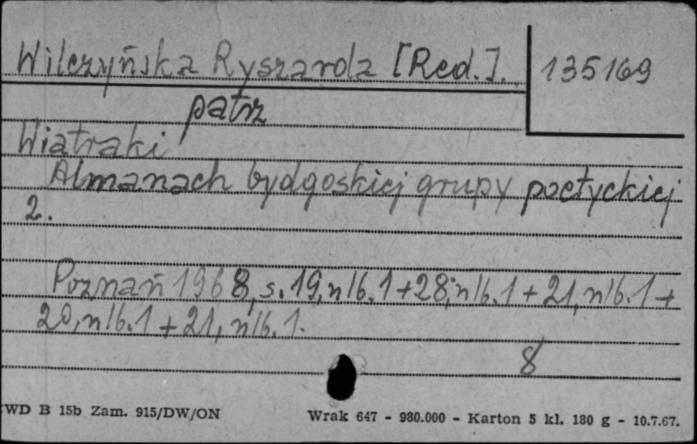 Wilczyńska Ryszarda [Red.]. 135169
patrz
Wiatraki
Almanach bydgoskiej grupy poetyckiej
2.
Poznań 1968, s. 19, nlb. 1 + 28, nlb. 1 + 21, nlb. 1 +
20, nlb. 1 + 21, nlb. 1.
8
WD B 15b Zam. 915/DW/ON Wrak 647 - 980.000 - Karton 5 kl. 180 g - 10.7.67.